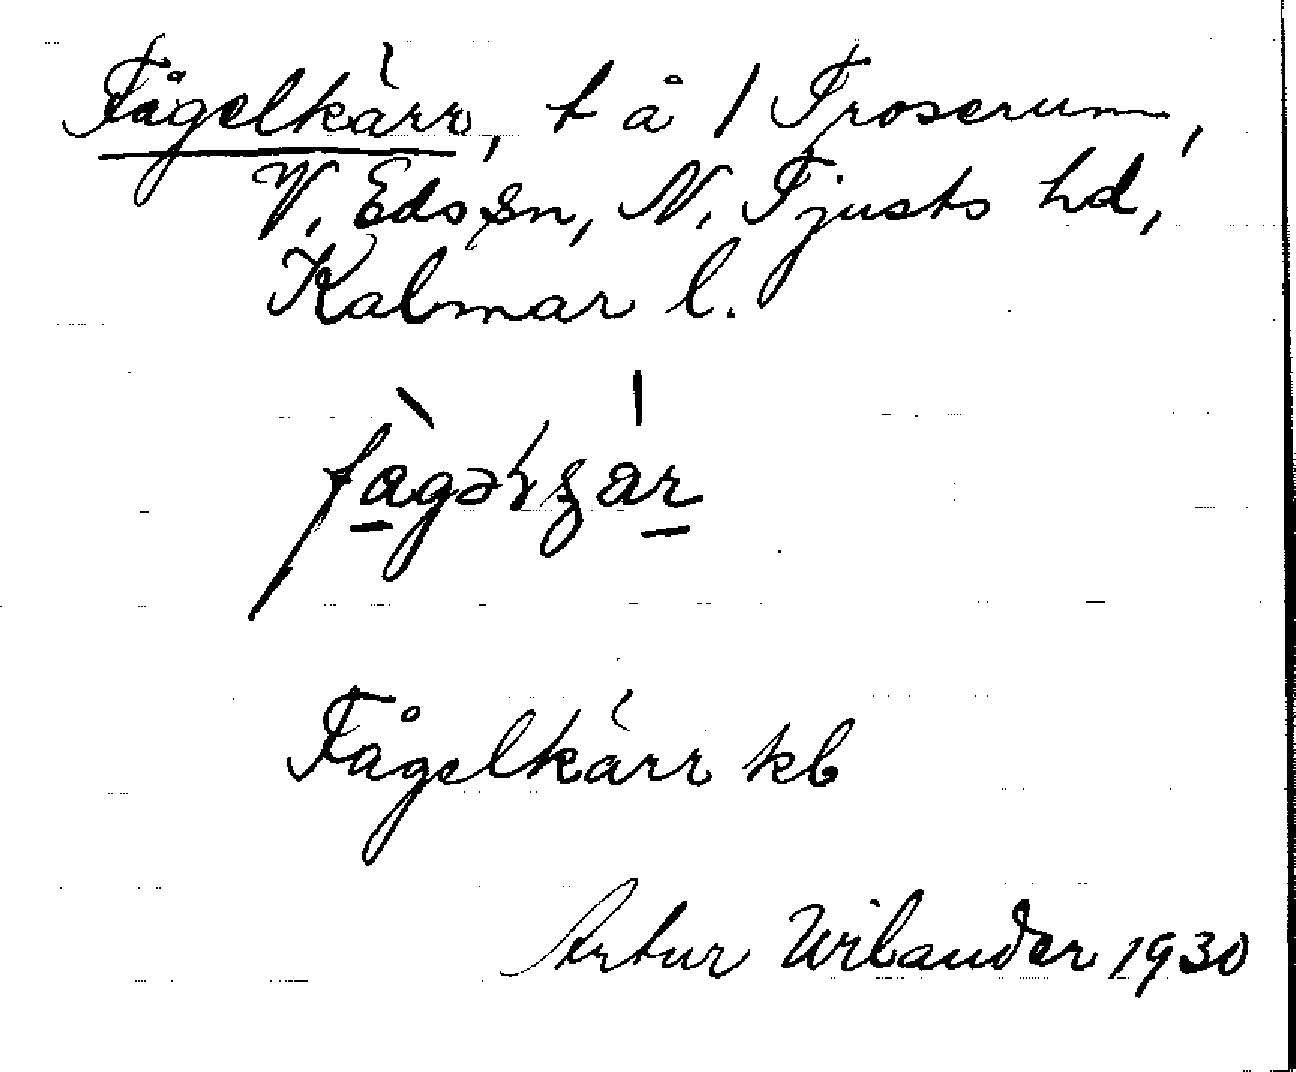 Fågelkärr, t å 1 Froserum,
V. Eds sn, N. Tjusts hd,
Kalmar l.
Fågelkärr kb
Artur Wilander 1930